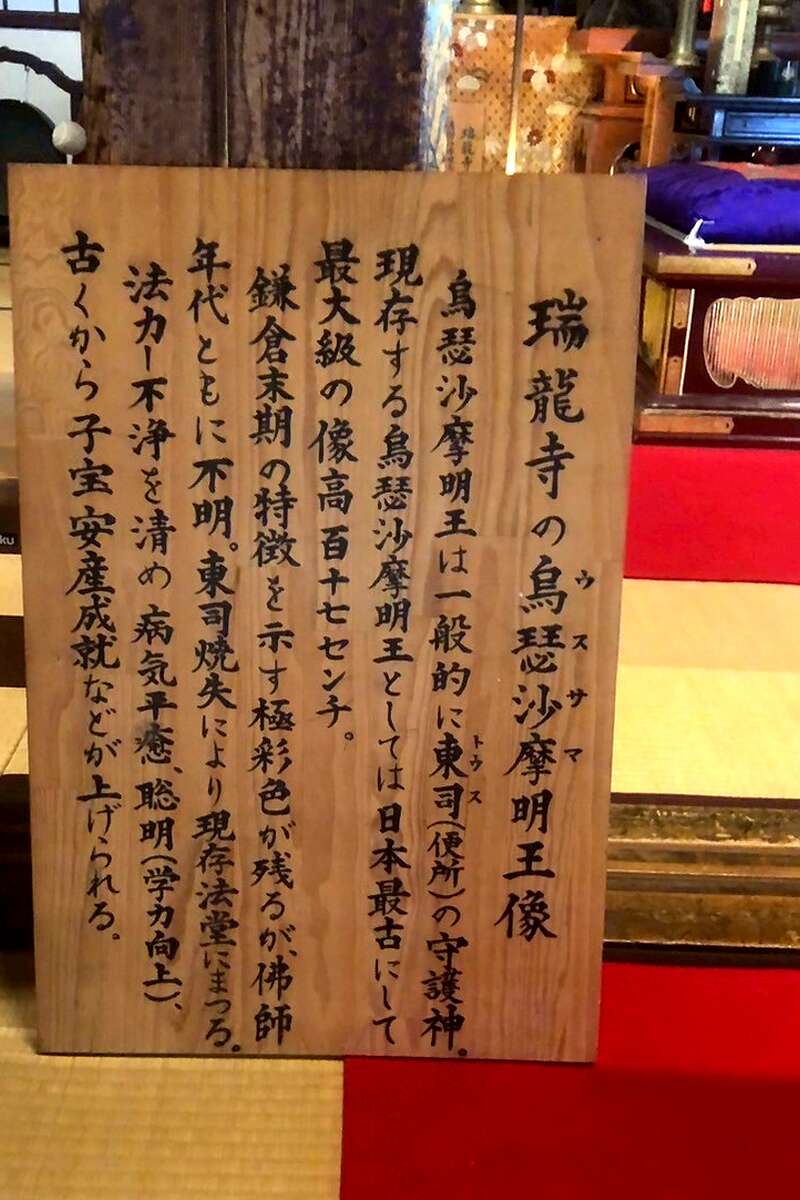 瑞龍寺の烏瑟沙摩明王像
ウスサマ
烏瑟沙摩明王は一般的に東司(便所)の守護神。
トウス
現存する烏瑟沙摩明王としては日本最古にして
最大級の像高百十七センチ。
鎌倉末期の特徴を示す極彩色が残るが、佛師
年代ともに不明。東司焼失により現存法堂にまつる。
法力ー不浄を清め 病気平癒、聡明(学力向上)、
古くから子宝安産成就などが上げられる。
瑞龍寺
ku